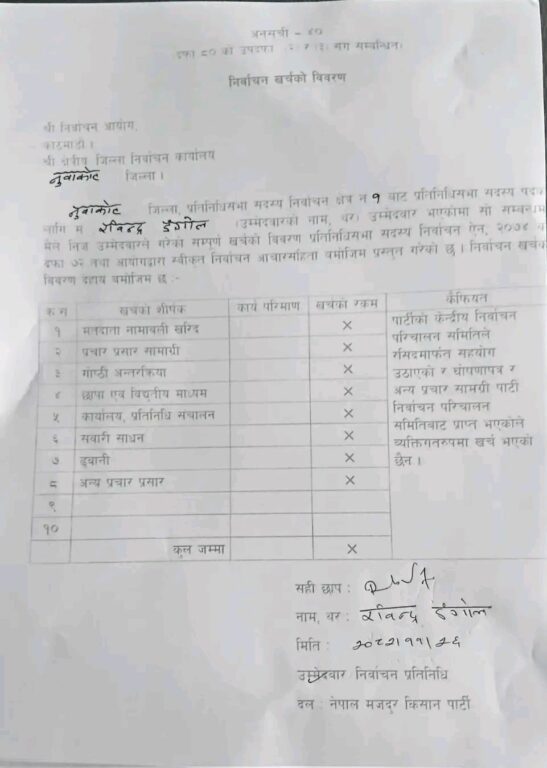 अनुसूची - ४०
दफा ८० को उपदफा (२) र (३) सँग सम्बन्धित)
निर्वाचन खर्चको विवरण
श्री निर्वाचन आयोग,
काठमाडौं ।
श्री क्षेत्रीय जिल्ला निर्वाचन कार्यालय
नुवाकोट जिल्ला ।
नुवाकोट जिल्ला, प्रतिनिधिसभा सदस्य निर्वाचन क्षेत्र नं १ बाट प्रतिनिधिसभा सदस्य पदका
लागि म रविन्द्र डंगोल (उम्मेदवारको नाम, थर) उम्मेदवार भएकोमा सो सम्बन्धमा
मैले निज उम्मेदवारले गरेको सम्पूर्ण खर्चको विवरण प्रतिनिधिसभा सदस्य निर्वाचन ऐन, २०७४ को
दफा ७२ तथा आयोगद्वारा स्वीकृत निर्वाचन आचारसंहिता बमोजिम प्रस्तुत गरेको छु । निर्वाचन खर्चको
विवरण देहाय बमोजिम छ :-
क्र.सं खर्चका शीर्षक कार्य परिमाण खर्चको रकम कैफियत
१ मतदाता नामावली खरिद ×
२ प्रचार प्रसार सामाग्री ×
३ गोष्ठी अन्तरक्रिया ×
४ छापा एवं विद्युतीय माध्यम ×
५ कार्यालय, प्रतिनिधि संचालन ×
६ सवारी साधन ×
७ ढुवानी ×
८ अन्य प्रचार प्रसार ×
९
१०
कुल जम्मा ×
पार्टीको केन्द्रीय निर्वाचन
परिचालन समितिले
रसिदमार्फत सहयोग
उठाएको र घोषणापत्र र
अन्य प्रचार सामग्री पार्टी
निर्वाचन परिचालन
समितिबाट प्राप्त भएकोले
व्यक्तिगतरुपमा खर्च भएको
छैन ।
सही छाप :
नाम, थर : रविन्द्र डंगोल
मिति : २०८२।११।२६
उम्मेदवार निर्वाचन प्रतिनिधि
दल : नेपाल मजदुर किसान पार्टी